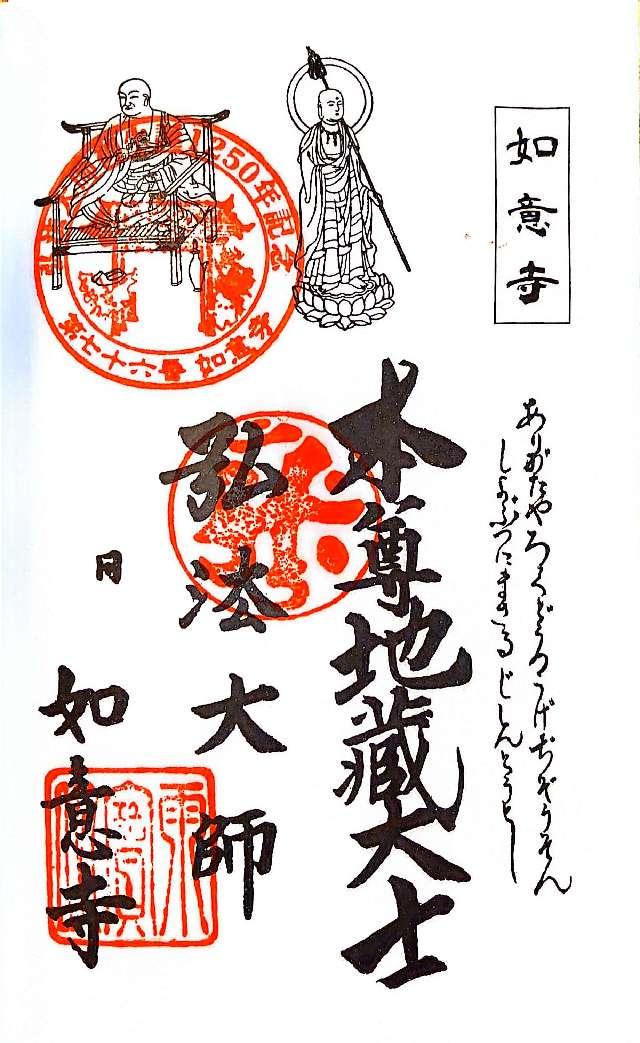 如意寺
ありがたやろくどうのうげぢぞうそん
しよぶつにまさるじしんとうとし
本尊地蔵大士
弘法大師
月
如意寺
250年記念
第七十六番 如意寺